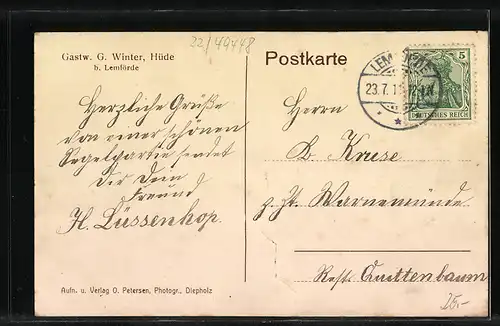 22/49448
Gastw. G. Winter, Hüde
b. Lemförde
Postkarte
5
DEUTSCHES REICH
23.7.1
Herzliche Grüße
von einer schönen
Segelpartie sendet
Dir Dein
Freund
H. Lüssenhop.
Herrn
Kruse
z. Zt. Warnemünde
Rest. Quittenbaum
Aufn. u. Verlag O. Petersen, Photogr., Diepholz
25.-